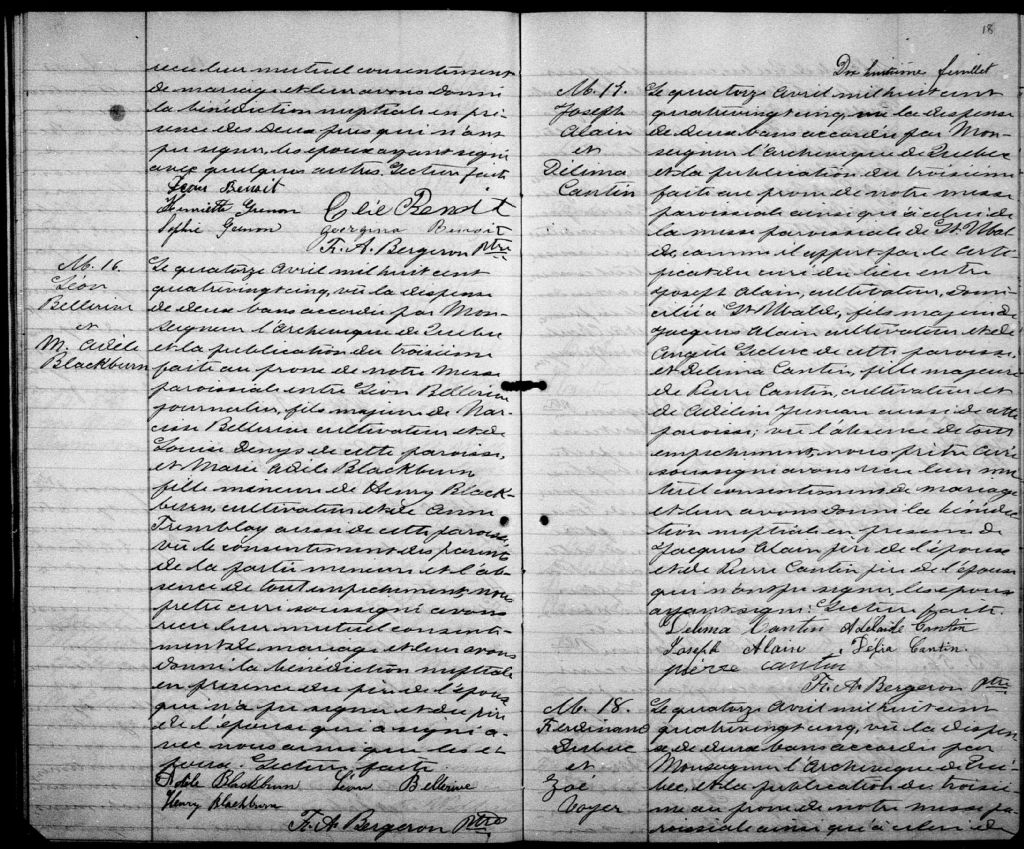 reçu leur mutuel consentement
de mariage et leur avons donné
la bénédiction nuptiale en pré-
sence des deux pères qui n'ont
pu signer, les époux ayant signé
avec quelques autres. Lecture faite
Jean Benoit
Henriette Grenon Elie Benoit
Sophie Grenon Georgina Benoit
Fr. A. Bergeron Ptre
M. 16.
Léon
Bellerive
et
M. Adèle
Blackburn
Le quatorze Avril mil huit cent
quatrevingt cinq, vû la dispense
de deux bans accordée par Mon-
seigneur l'Archevêque de Québec
et la publication du troisième
faite au prône de notre Messe
paroissiale entre Léon Bellerive
journalier, fils majeur de Nar-
cisse Bellerive cultivateur et de
Louise Denys de cette paroisse,
et Marie Adèle Blackburn
fille mineure de Henry Black-
burn, cultivateur et de Anne
Tremblay aussi de cette paroisse,
vû le consentement des parents
de la partie mineure et l'ab-
sence de tout empêchement, nous
prêtre curé soussigné avons
reçu leur mutuel consenti-
ment de mariage et leur avons
donné la bénédiction nuptiale
en présence du père de l'époux
qui n'a pu signer et du père
de l'épouse qui a signé a-
vec nous ainsi que les é-
poux. Lecture faite.
Adèle Blackburn Léon Bellerive
Henry Blackburn
Fr. A. Bergeron Ptre
18
Dix huitième feuillet
M. 17.
Joseph
Alain
et
Délima
Cantin
Le quatorze Avril mil huit cent
quatrevingt cinq, vû la dispense
de deux bans accordée par Mon-
seigneur l'Archevêque de Québec
et la publication du troisième
faite au prône de notre messe
paroissiale ainsi qu'à celui de
la messe paroissiale de St. Ubal-
de, comme il appert par le certi-
ficat du curé du lieu entre
Joseph Alain, cultivateur, domi-
cilié à St Ubalde, fils majeur de
Jacques Alain cultivateur et de
Angèle Leclerc de cette paroisse,
et Délima Cantin, fille majeure
de Pierre Cantin, cultivateur et
de Adeline Juneau aussi de cette
paroisse; vû l'absence de tout
empêchement, nous prêtre curé
soussigné avons reçu leur mu-
tuel consentement de mariage
et leur avons donné la bénédic-
tion nuptiale en présence de
Jacques Alain père de l'époux
et de Pierre Cantin père de l'épouse
qui n'ont pu signer, les époux
ayant signé. Lecture faite.
Délima Cantin Adelaide Cantin
Joseph Alain Délia Cantin
pierre cantin
Fr. A. Bergeron Ptre
M. 18.
Ferdinand
Dubuc
et
Zoé
Voyer
Le quatorze Avril mil huit cent
quatrevingt cinq, vû la dispen-
se de deux bans accordée par
Monseigneur l'Archevêque de Qué-
bec, et la publication du troisiè-
me au prône de notre messe pa-
roissiale ainsi qu'à celui de